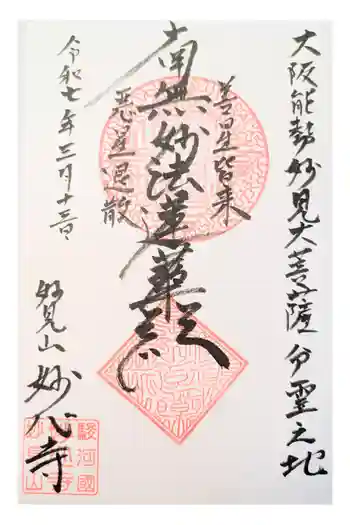 大阪能勢妙見大菩薩分霊之地
善星皆来
南無妙法蓮華経
悪星退散
令和七年三月十三日
妙見山 妙代寺
駿河國
妙見山